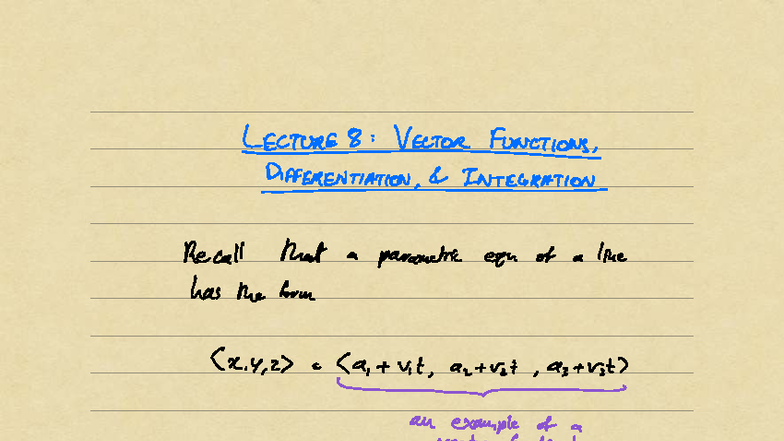 LECTURE 8: VECTOR FUNCTIONS,
DIFFERENTIATION, & INTEGRATION
Recall that a parametric eqn of a line
has the form
⟨x,y,z⟩ = ⟨a₁ + v₁t, a₂ + v₂t, a₃ + v₃t⟩
an example of a